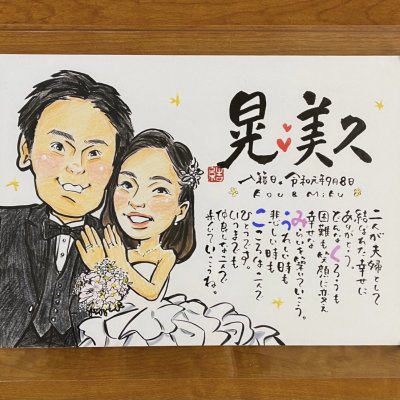 晃美久
入籍日。令和元年9月8日
KOU & MIKU
二人が夫婦として
結ばれた幸せに
ありがとう。
どんなくろうも
困難も笑顔に変え
幸せな
みらいを築いていこう。
うれしい時も
悲しい時も
こころは二人で
ひとつです。
いつまでも
仲良しな二人で
歩いていこうね。